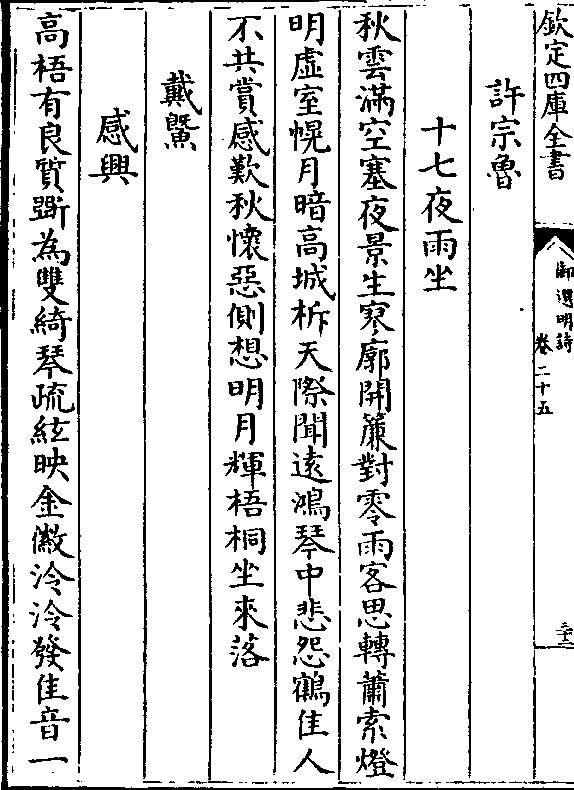 欽定四庫全書
御選明詩
卷二十五
三十二
許宗魯
十七夜雨坐
秋雲滿空塞夜景生寥廓開簾對零雨客思轉蕭索燈
明虛室幌月暗高城柝天際聞遠鴻琴中悲怨鶴佳人
不共賞感歎秋懷惡側想明月輝梧桐坐來落
戴鱀
感興
高梧有良質斲為雙綺琴疏絃映金徽泠泠發佳音一